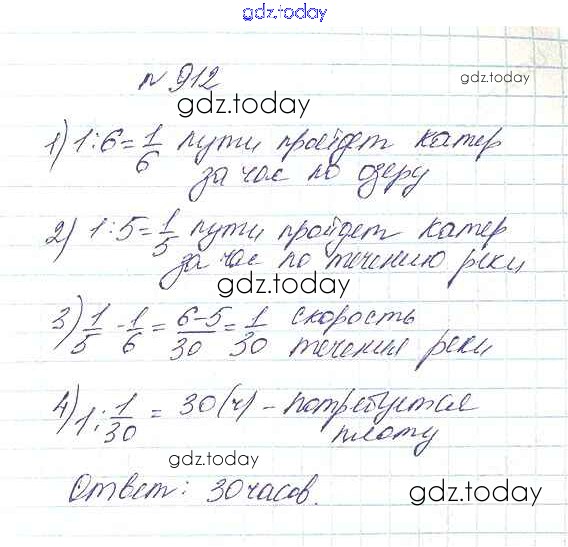 gdz.today
gdz.today
№ 912
gdz.today
1) 1:6=1/6 пути пройдет катер
за час по озеру
gdz.today
2) 1:5=1/5 пути пройдет катер
за час по течению реки
gdz.today
3) 1/5 - 1/6 = 6-5/30 = 1/30 скорость
течения реки
gdz.today
4) 1:1/30 = 30 (ч) - потребуется
плоту
gdz.today
Ответ: 30 часов.
gdz.today